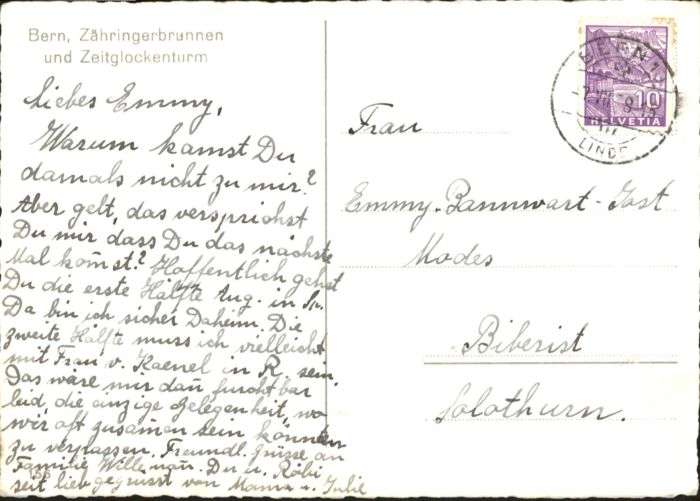 Bern, Zähringerbrunnen
und Zeitglockenturm
Liebes Emmy,
Warum kamst Du
damals nicht zu mir?
Aber gelt, das versprichst
Du mir dass Du das nächste
Mal kom̄st? Hoffentlich gehst
Du die erste Hälfte Aug. in
Da bin ich sicher Daheim. Die
zweite Hälfte muss ich vielleicht
mit Frau v. Kaenel in R. sein.
Das wäre mir dan̄ furchtbar
leid, die einzige Gelegenheit, wo
wir oft zusam̄en sein kön̄ten
zu verpassen. Freundl. Grüsse an
Familie Willeman̄. Du u. Robi
seit lieb gegrüsst von Mama u. Julie
BERN 1
LINDE
10
HELVETIA
Frau
Emmy-Bannwart-Jost
Modes
Biberist
Solothurn.